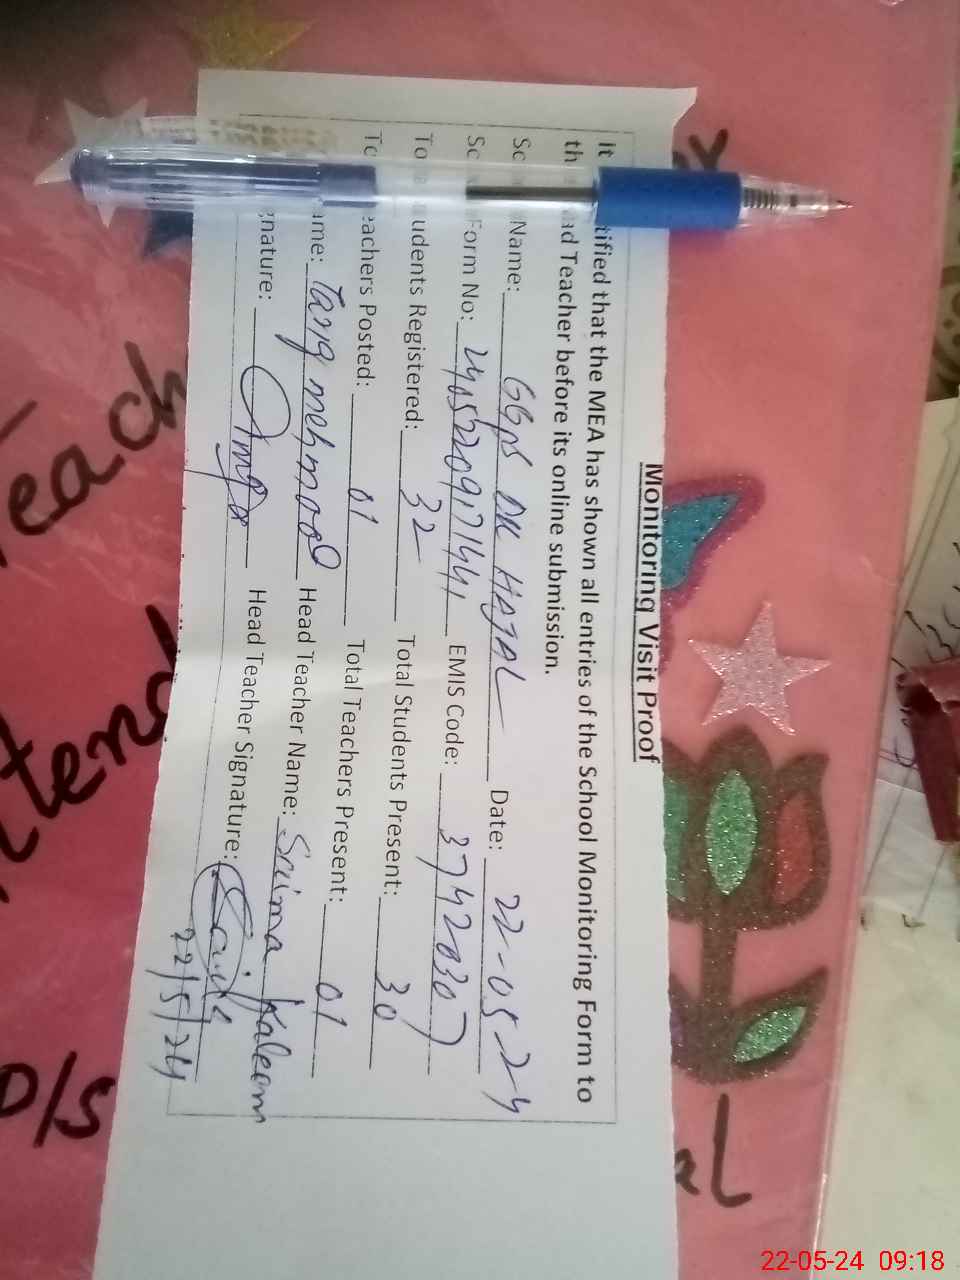 Monitoring Visit Proof
It tified that the MEA has shown all entries of the School Monitoring Form to
th ad Teacher before its online submission.
Sc Name: GGPS DK HAJAL Date: 22-05-24
Sc Form No: EMIS Code: 37420307
To udents Registered: 32 Total Students Present: 30
Te eachers Posted: 01 Total Teachers Present: 01
ame: Tariq mehmood Head Teacher Name: Saima Kaleem
gnature: Head Teacher Signature:
22/5/24
Teach
D/S
al
22-05-24 09:18